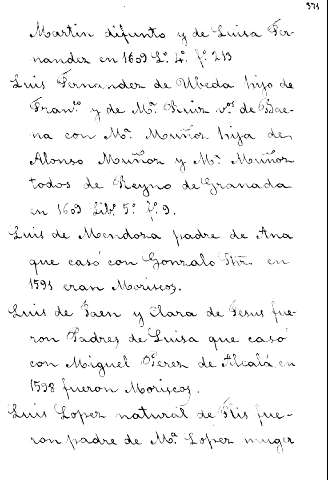 371
Martin difunto y de Luisa Fer-
nandez en 1609 L.º 4.º f.º 219
Luis Fernandez de Ubeda hijo de
Fran.co y de M.ª Ruiz v.os de Bae-
na con M.ª Muñoz hija de
Alonso Muñoz y M.ª Muñoz
todos de Reyno de Granada
en 1609 Lib.º 5.º f.º 9.
Luis de Mendoza padre de Ana
que casó con Gonzalo en
1591 eran Moriscos.
Luis de Jaen y Clara de Jesus fue-
ron Padres de Luisa que casó
con Miguel Perez de Alcalá en
1598 fueron Moriscos.
Luis Lopez natural de fue-
ron padre de M.ª Lopez muger